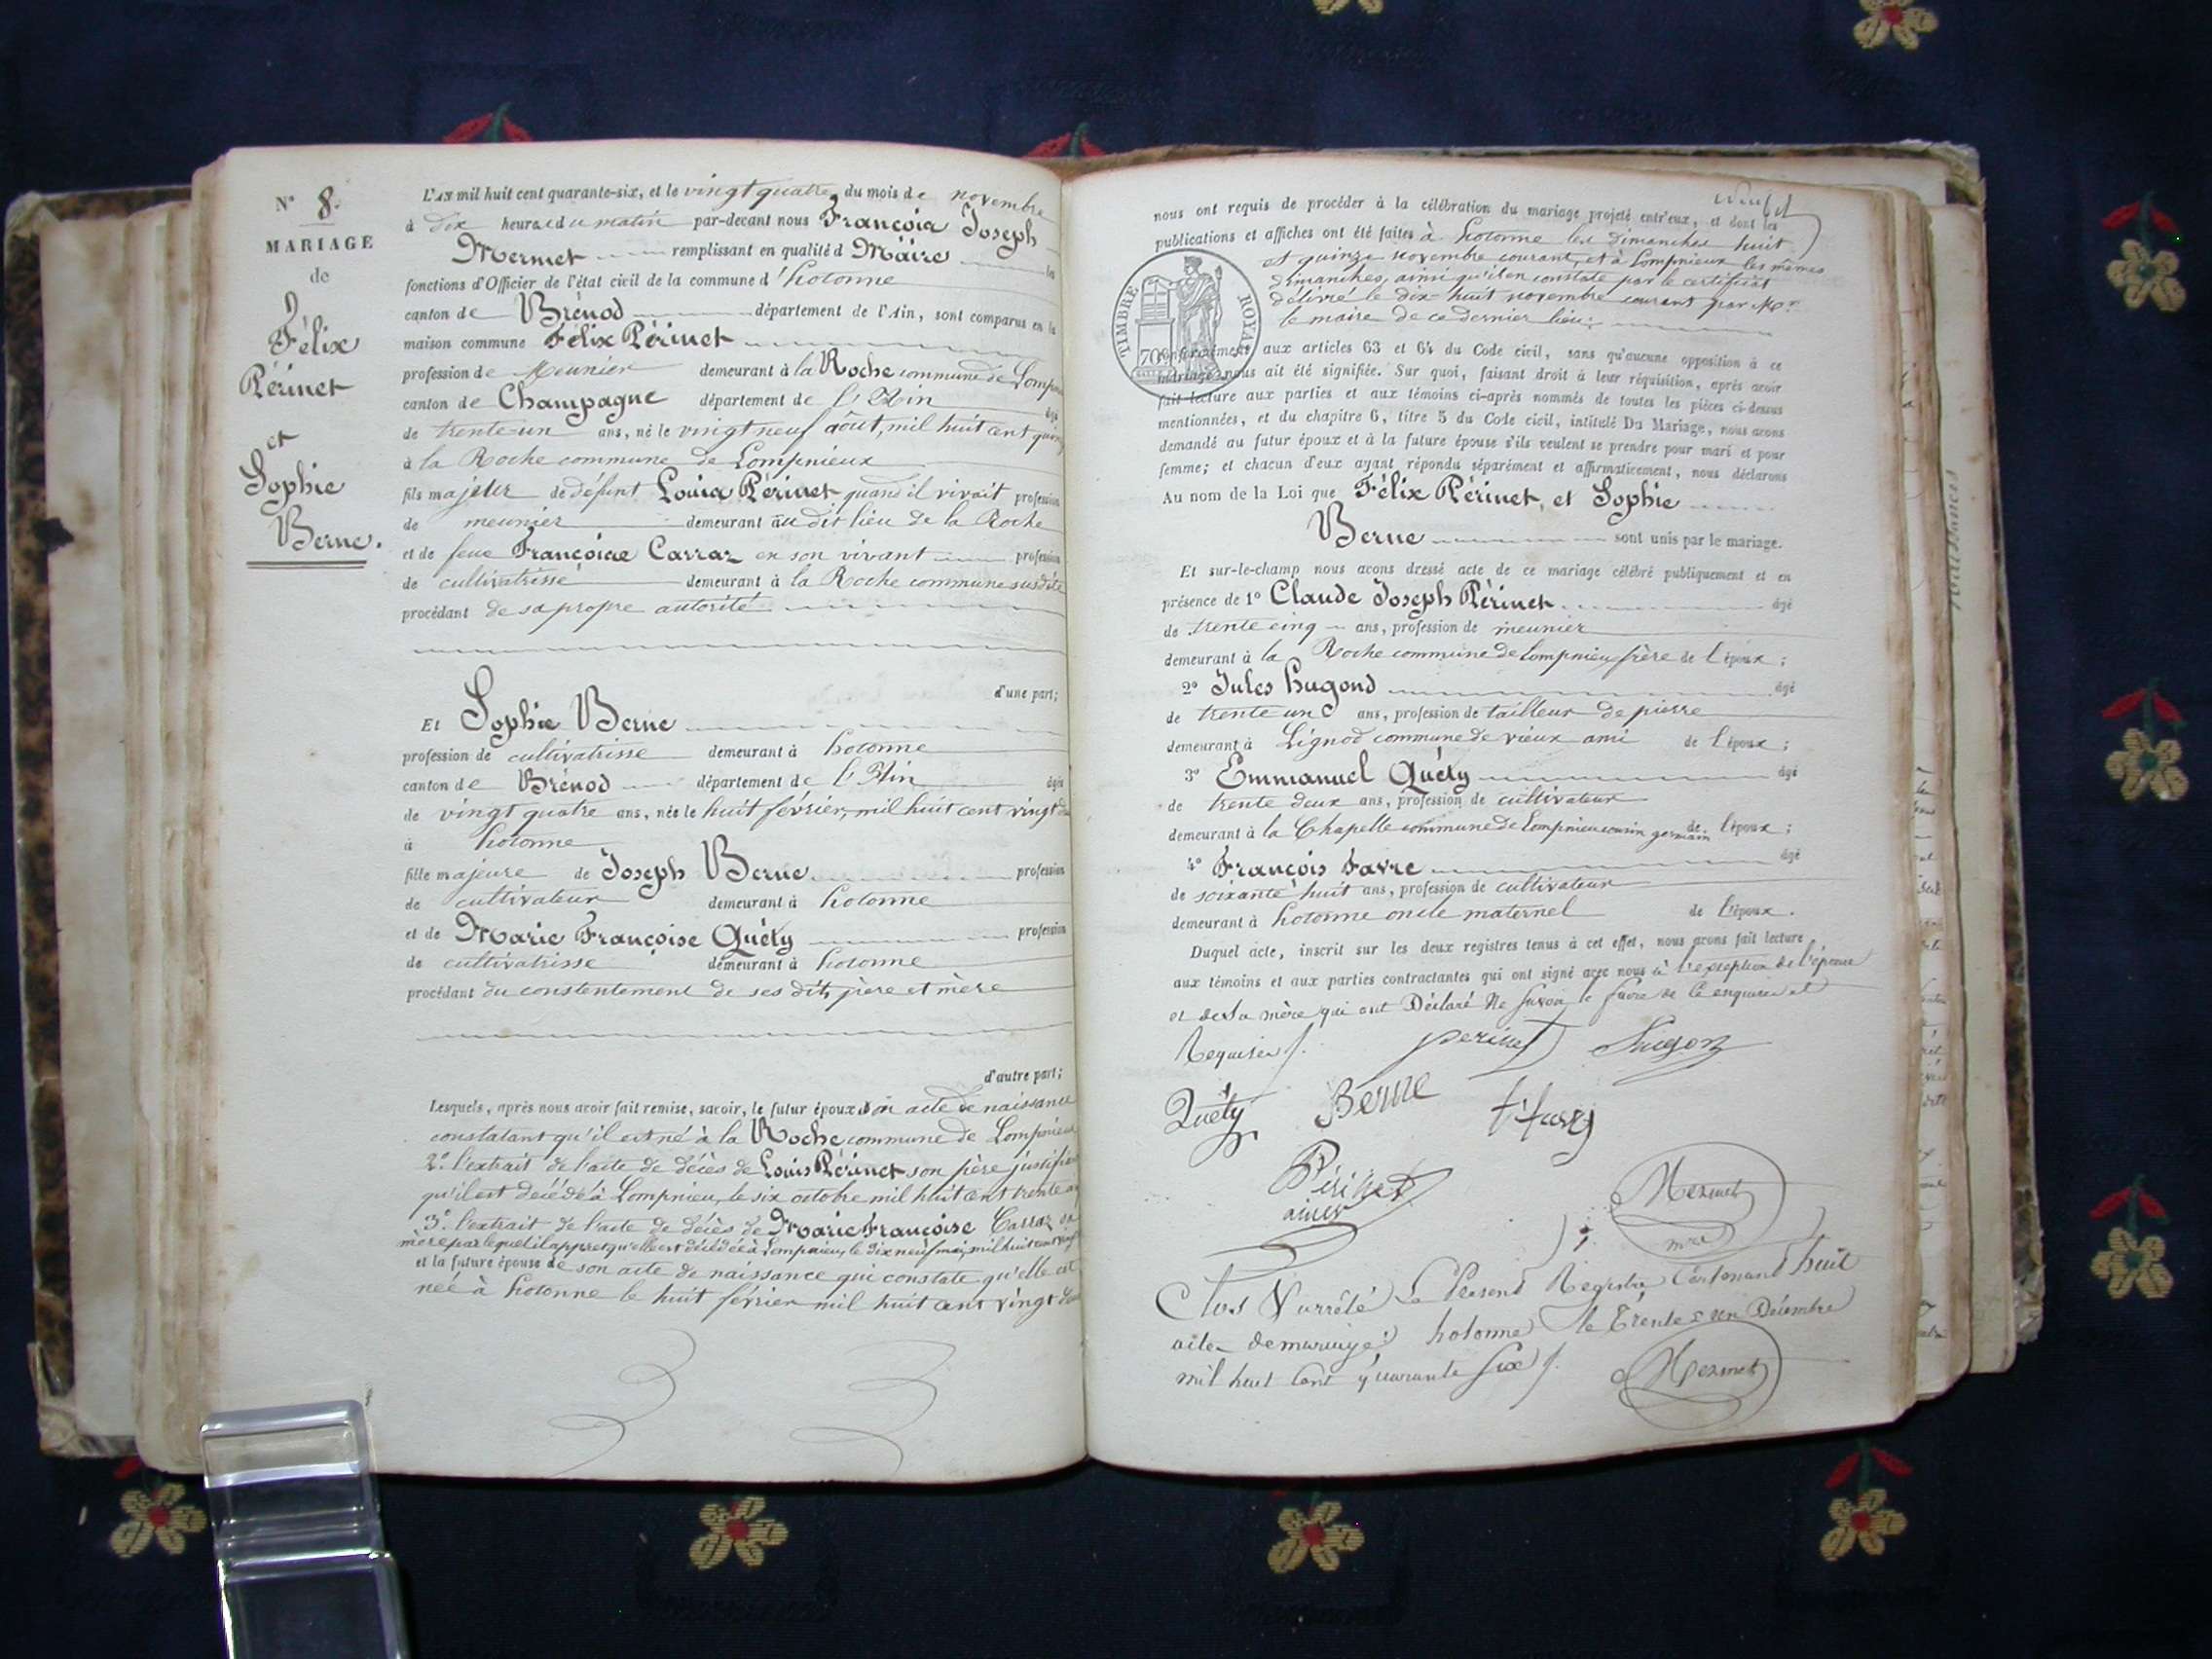 N° 8.
MARIAGE
de
Félix
Périnet
et
Sophie
Berne.
L'AN mil huit cent quarante-six, et le vingt quatre du mois de novembre
à dix heures du matin par-devant nous François Joseph
Mermet remplissant en qualité d Maire les
fonctions d'Officier de l'état civil de la commune d'hotonne
canton de Brénod département de l'Ain, sont comparus en la
maison commune Félix Périnet
profession de Meunier demeurant à la Roche commune de
canton de Champagne département de l'Ain âgé
de trente-un ans, né le vingt neuf août, mil huit cent
à la Roche commune de Lompnieux
fils majeur de défunt Louis Périnet quand il vivait profession
de meunier demeurant au dit lieu de la Roche
et de feue Françoise Carraz en son vivant profession
de cultivatrisse demeurant à la Roche commune susdite
procédant de sa propre autorité
d'une part;
Et Sophie Berne
profession de cultivatrisse demeurant à hotonne
canton de Brénod département de l'Ain âgée
de vingt quatre ans, née le huit février, mil huit cent vingt
à hotonne
fille majeure de Joseph Berne profession
de cultivateur demeurant à hotonne
et de Marie Françoise Quéty profession
de cultivatrisse demeurant à hotonne
procédant du constentement de ses dits père et mère
d'autre part;
Lesquels, après nous avoir fait remise, savoir, le futur époux son acte de naissance
constatant qu'il est né à la Roche commune de Lompnieux
2° l'extrait de l'acte de décès de Louis Périnet son père
qu'il est décédé à Lompnieu, le six octobre mil huit cent trente
3° l'extrait de l'acte de décès de Marie Françoise Carraz sa
mère par lequel il appret qu'elle est décédée à Lompnieu, le dix neuf mai, mil huit cent
et la future épouse de son acte de naissance qui constate qu'elle est
née à hotonne le huit février mil huit cent vingt
neuf
nous ont requis de procéder à la célébration du mariage projeté entr'eux, et dont les
publications et affiches ont été faites à hotonne les dimanches huit
et quinze novembre courant, et à Lompnieux les mêmes
dimanches, ainsi qu'il en constate par le certificat
délivré le dix-huit novembre courant par Mr.
le maire de ce dernier lieu.
TIMBRE ROYAL
70
conformément aux articles 63 et 64 du Code civil, sans qu'aucune opposition à ce
mariage nous ait été signifiée. Sur quoi, faisant droit à leur réquisition, après avoir
fait lecture aux parties et aux témoins ci-après nommés de toutes les pièces ci-dessus
mentionnées, et du chapitre 6, titre 5 du Code civil, intitulé Du Mariage, nous avons
demandé au futur époux et à la future épouse s'ils veulent se prendre pour mari et pour
femme; et chacun d'eux ayant répondu séparément et affirmativement, nous déclarons
Au nom de la Loi que Félix Périnet, et Sophie
Berne sont unis par le mariage.
Et sur-le-champ nous avons dressé acte de ce mariage célébré publiquement et en
présence de 1° Claude Joseph Périnet âgé
de trente cinq ans, profession de meunier
demeurant à la Roche commune de Lompnieu frère de l'époux;
2° Jules Hugond âgé
de trente un ans, profession de tailleur de pierre
demeurant à Lignod commune de vieux ami de l'époux;
3° Emmanuel Quéty âgé
de trente deux ans, profession de cultivateur
demeurant à la Chapelle commune de Lompnieu cousin germain de l'époux;
4° François Favre âgé
de soixante huit ans, profession de cultivateur
demeurant à hotonne oncle maternel de l'époux.
Duquel acte, inscrit sur les deux registres tenus à cet effet, nous avons fait lecture
aux témoins et aux parties contractantes qui ont signé avec nous à l'exception de l'épouse
et de sa mère qui ont Déclaré ne Savoir le faire de ce enquises et
Requises
perinet Hugon
Quéty Berne
Périnet
ainé
Mermet
mre
Clos & arrêté Le Présend Registre Contenand huit
acte de mariage hotonne le trente & un Décembre
mil huit Cent quarante Six
Mermet
Naissances